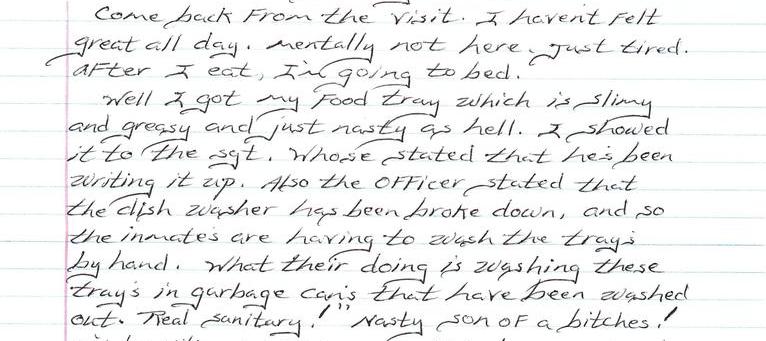 Come back From the visit. I havent Felt
great all day. mentally not here. Just tired.
after I eat, I'm going to bed.
Well I got my Food tray which is slimy
and greasy and just nasty as hell. I showed
it to the sgt. Whose stated that he's been
writing it up. Also the OFFicer stated that
the dish washer has been broke down, and so
the inmates are having to wash the tray's
by hand. What their doing is washing these
tray's in garbage can's that have been washed
out. Real sanitary!" Nasty son oF a bitches!